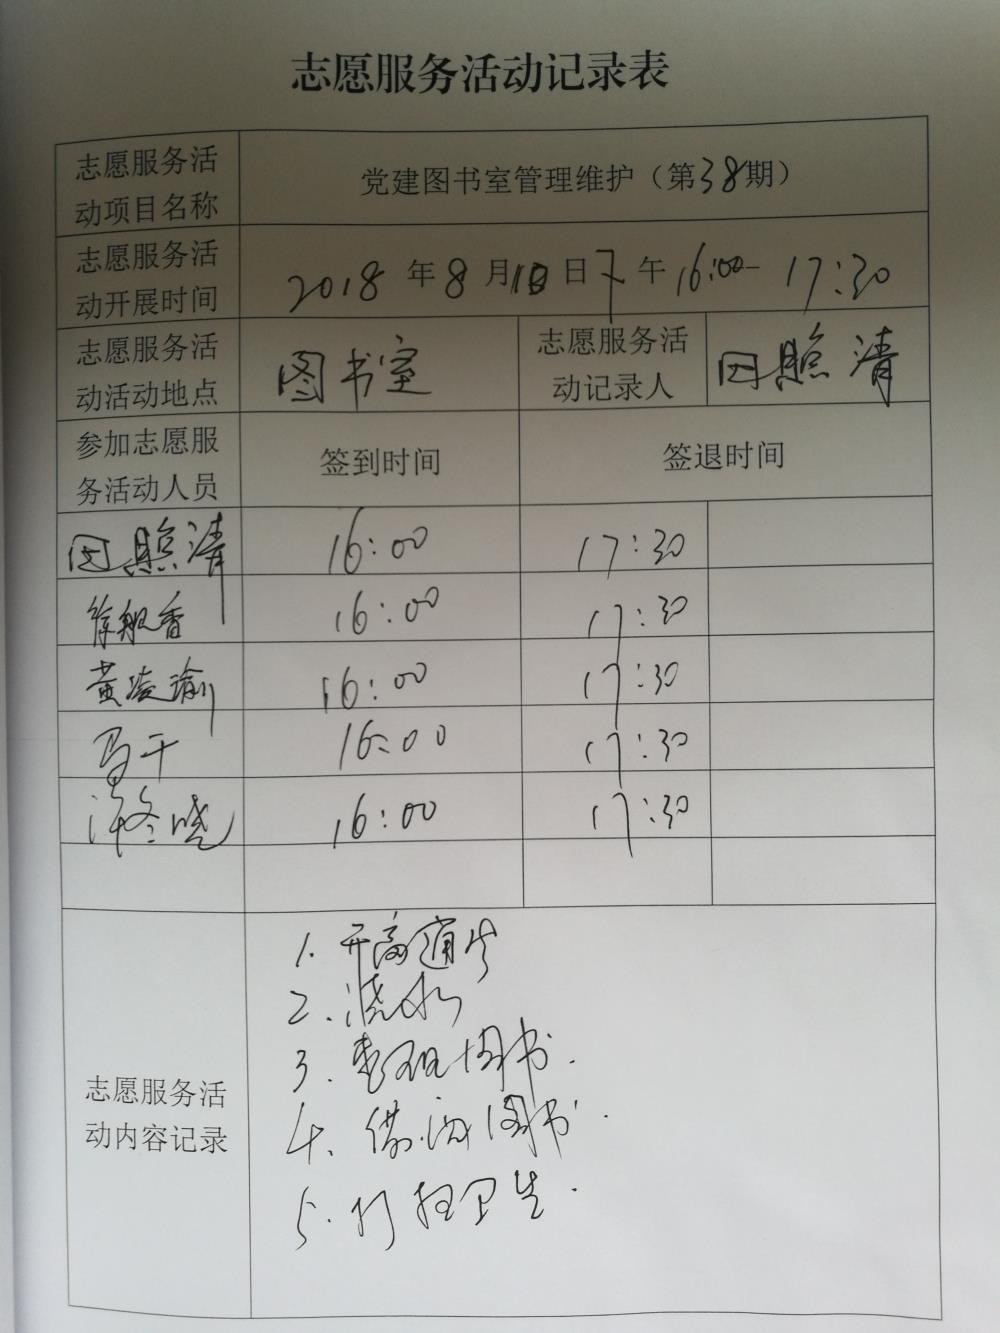 志愿服务活动记录表
志愿服务活
动项目名称
党建图书室管理维护（第38期）
志愿服务活
动开展时间
2018年8月10日下午16:00-17:30
志愿服务活
动活动地点
图书室
志愿服务活
动记录人
照清
参加志愿服
务活动人员
签到时间
签退时间
照清 16:00 17:30
香 16:00 17:30
黄凌瑜 16:00 17:30
马干 16:00 17:30
晓 16:00 17:30
志愿服务活
动内容记录
1. 开窗通
2. 浇水
3. 整理图书.
4. 借阅图书.
5. 打扫卫生.